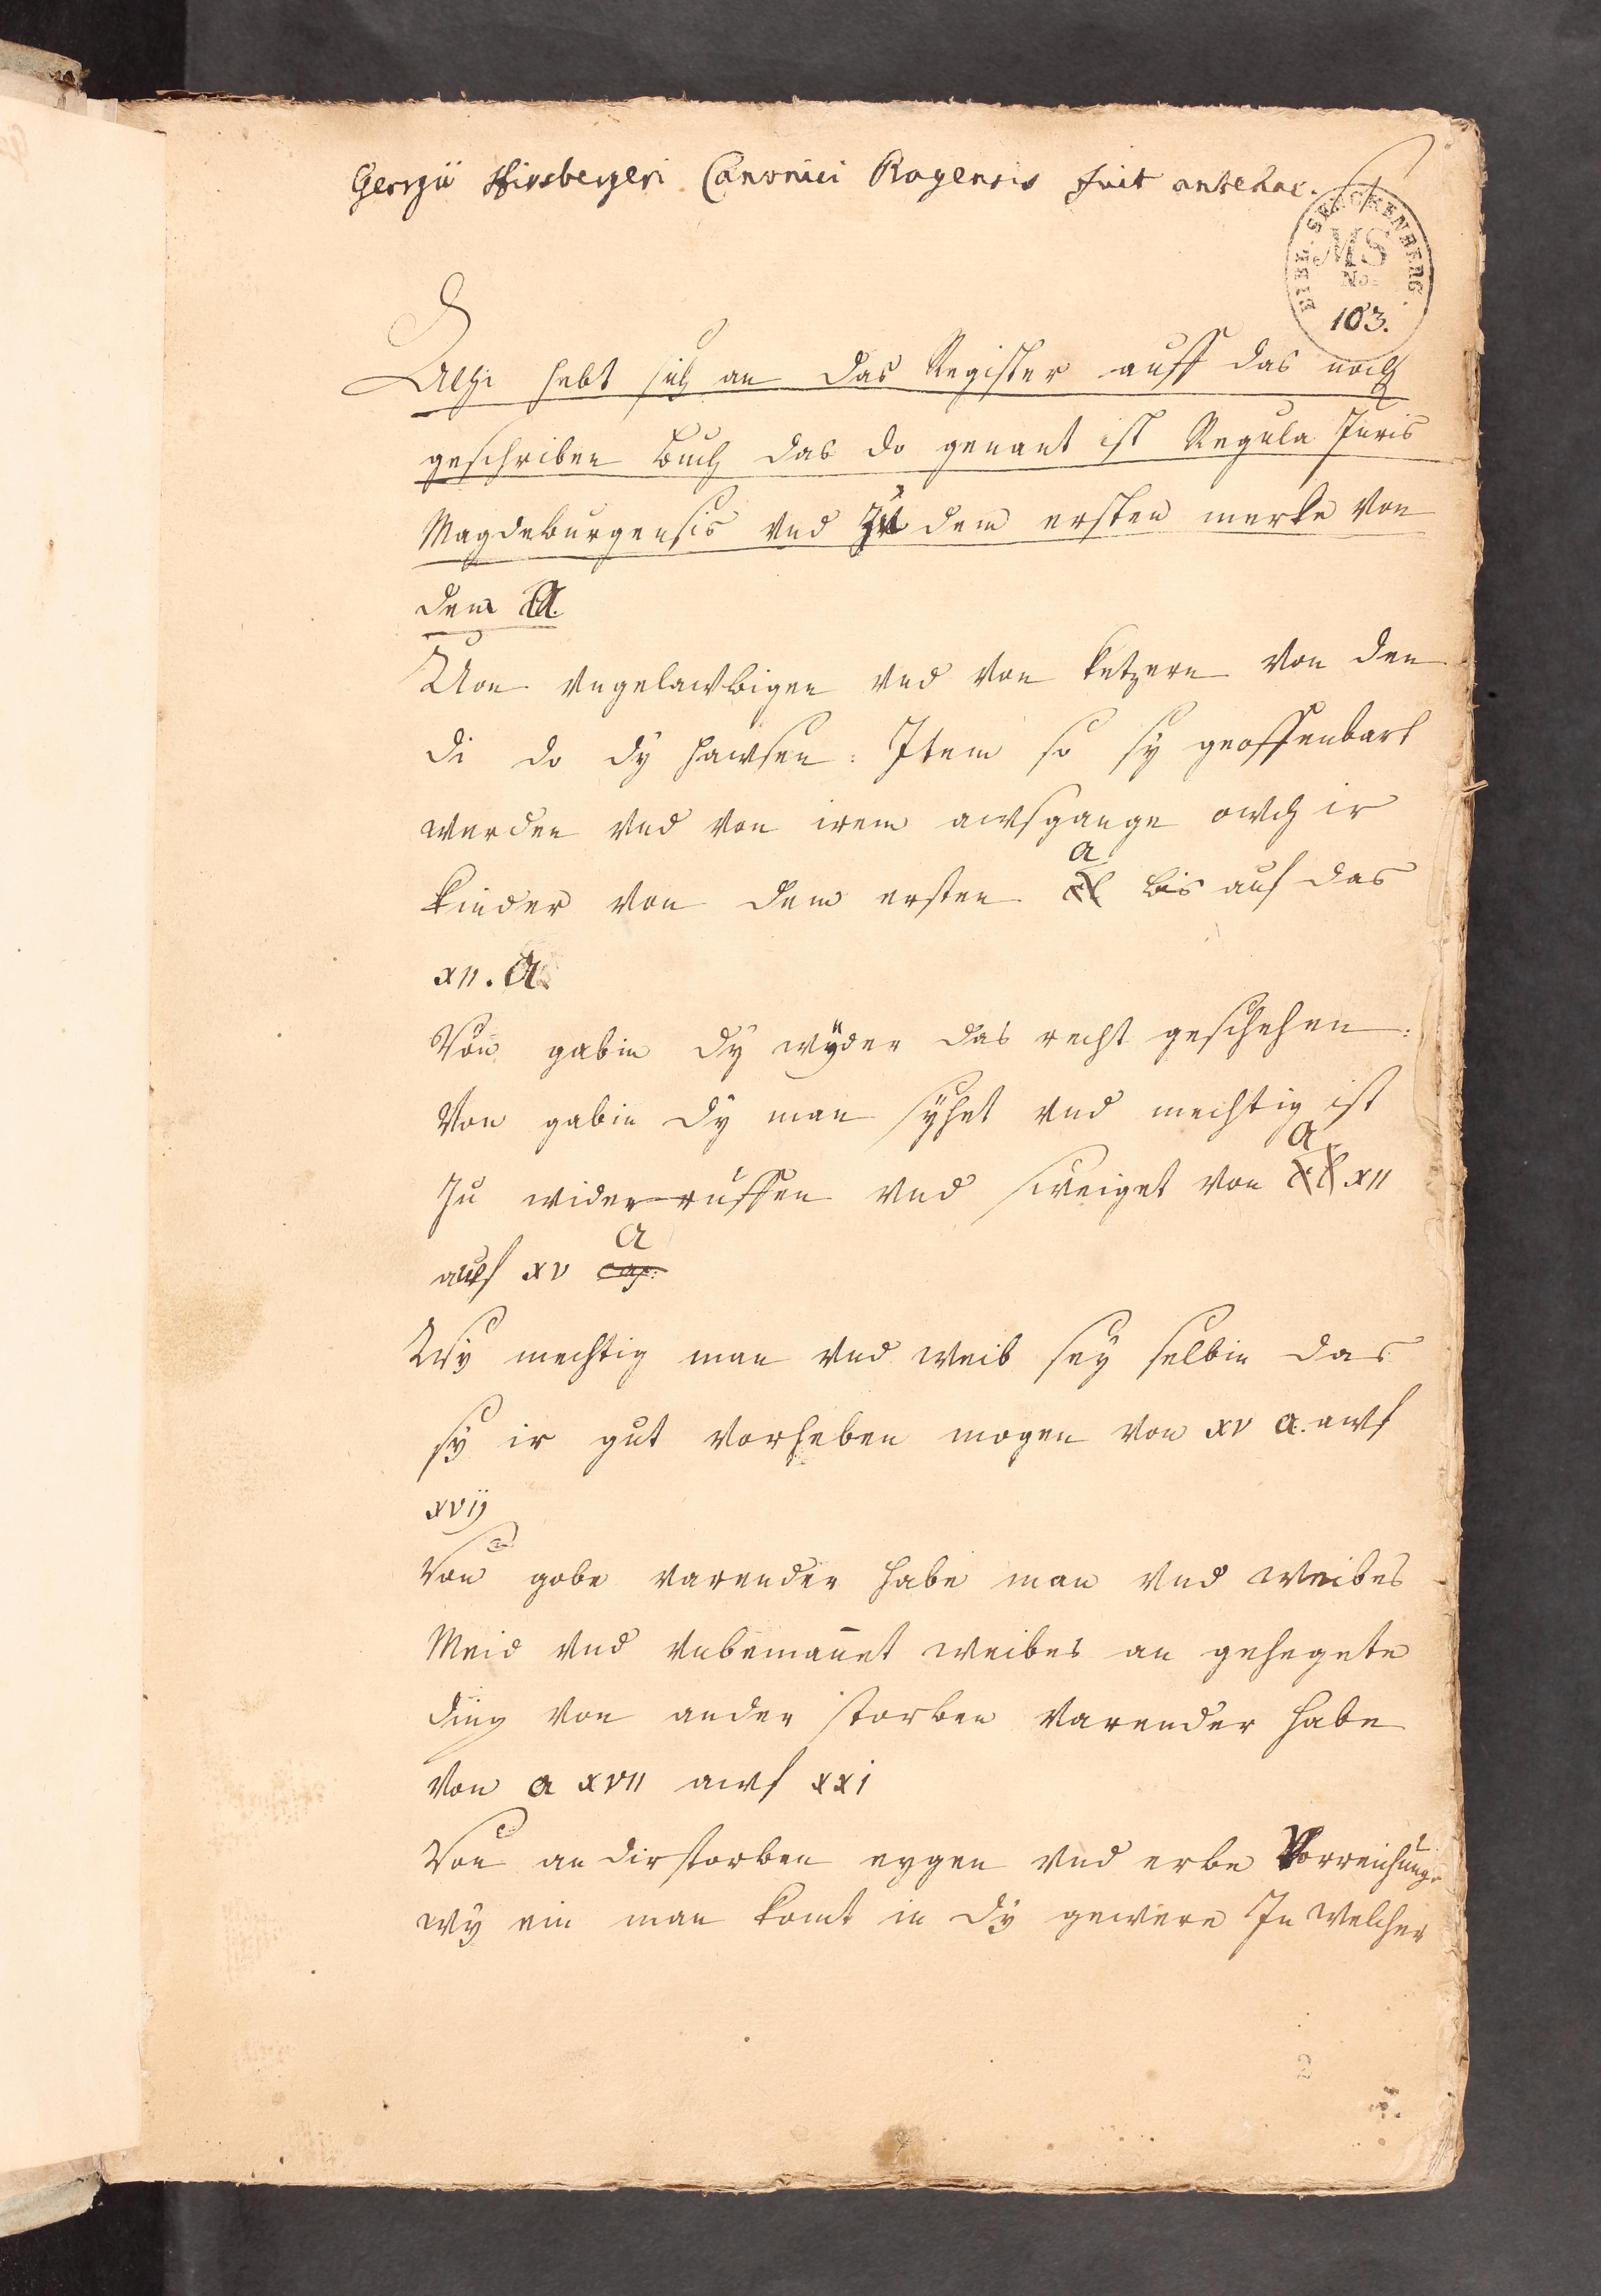 Georgii Hirsbergeri Canonici Ragensis fuit antehac.
BIBL. SENCKENBERG.
MS
No.
103.
Alhi hebt sich an das Register auff das noch
geschriben Buch das do genant ist Regula Juris
Magdeburgensis vnd Zu dem ersten merke von
dem A.
Von vngelawbigen vnd von ketzern von den
di do dy hawsen: Item so sy geoffenbart
werden vnd von irem awsgange owch ir
kinder von dem ersten a bis auf das
xii. A.
Von gabin dy wyder das recht geschehen:
Von gabin dy man syhet vnd mechtig ist
zu widerruffen vnd sweiget von a xii
auf xv a cap:
Wy mechtig man vnd weib sey selbin das
sy ir gut vorheben mogen von xv a. awf
xvij
Von gobe varender habe man vnd weibes
Meid vnd vnbemañet weibes an gehegete
ding von ander storben varender habe
von a xvii awf xxi
Von an dirstorben eygen vnd erbe Vorreichung
wy ein man komt in dy gewere In welcher
2